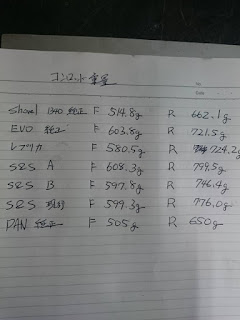 コンロッド 重量
No.
Date
Shovel 1340 純正 F 514.8g R 662.1g
EVO 純正 F 603.8g R 721.5g
レプリカ F 580.5g R 724.2g
S&S A F 608.3g R 799.5g
S&S B F 597.8g R 746.4g
S&S F 599.3g R 776.0g
PAN 純正 F 505g R 650g